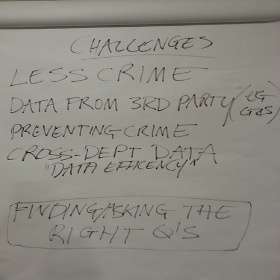 CHALLENGES
LESS CRIME
DATA FROM 3RD PARTY (EG
PREVENTING CRIME
CROSS-DEPT DATA
"DATA EFFICENCY"
FINDING/ASKING THE
RIGHT Q'S